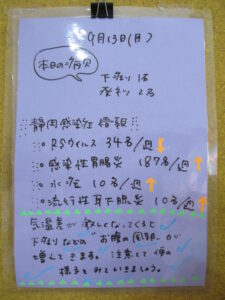 9月13日(月)
本日の病欠
下痢 1名
発熱 2名
静岡感染症情報
○RSウイルス 34名/週↓
○感染性胃腸炎 187名/週↑
○水痘 10名/週↑
○流行性耳下腺炎 10名/週↑
気温差が激しくなってくると
下痢などの"お腹の風邪"が
増えてきます。注意して便の
様子をみていきましょう。